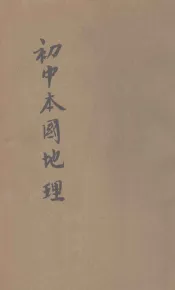 初中本國地理